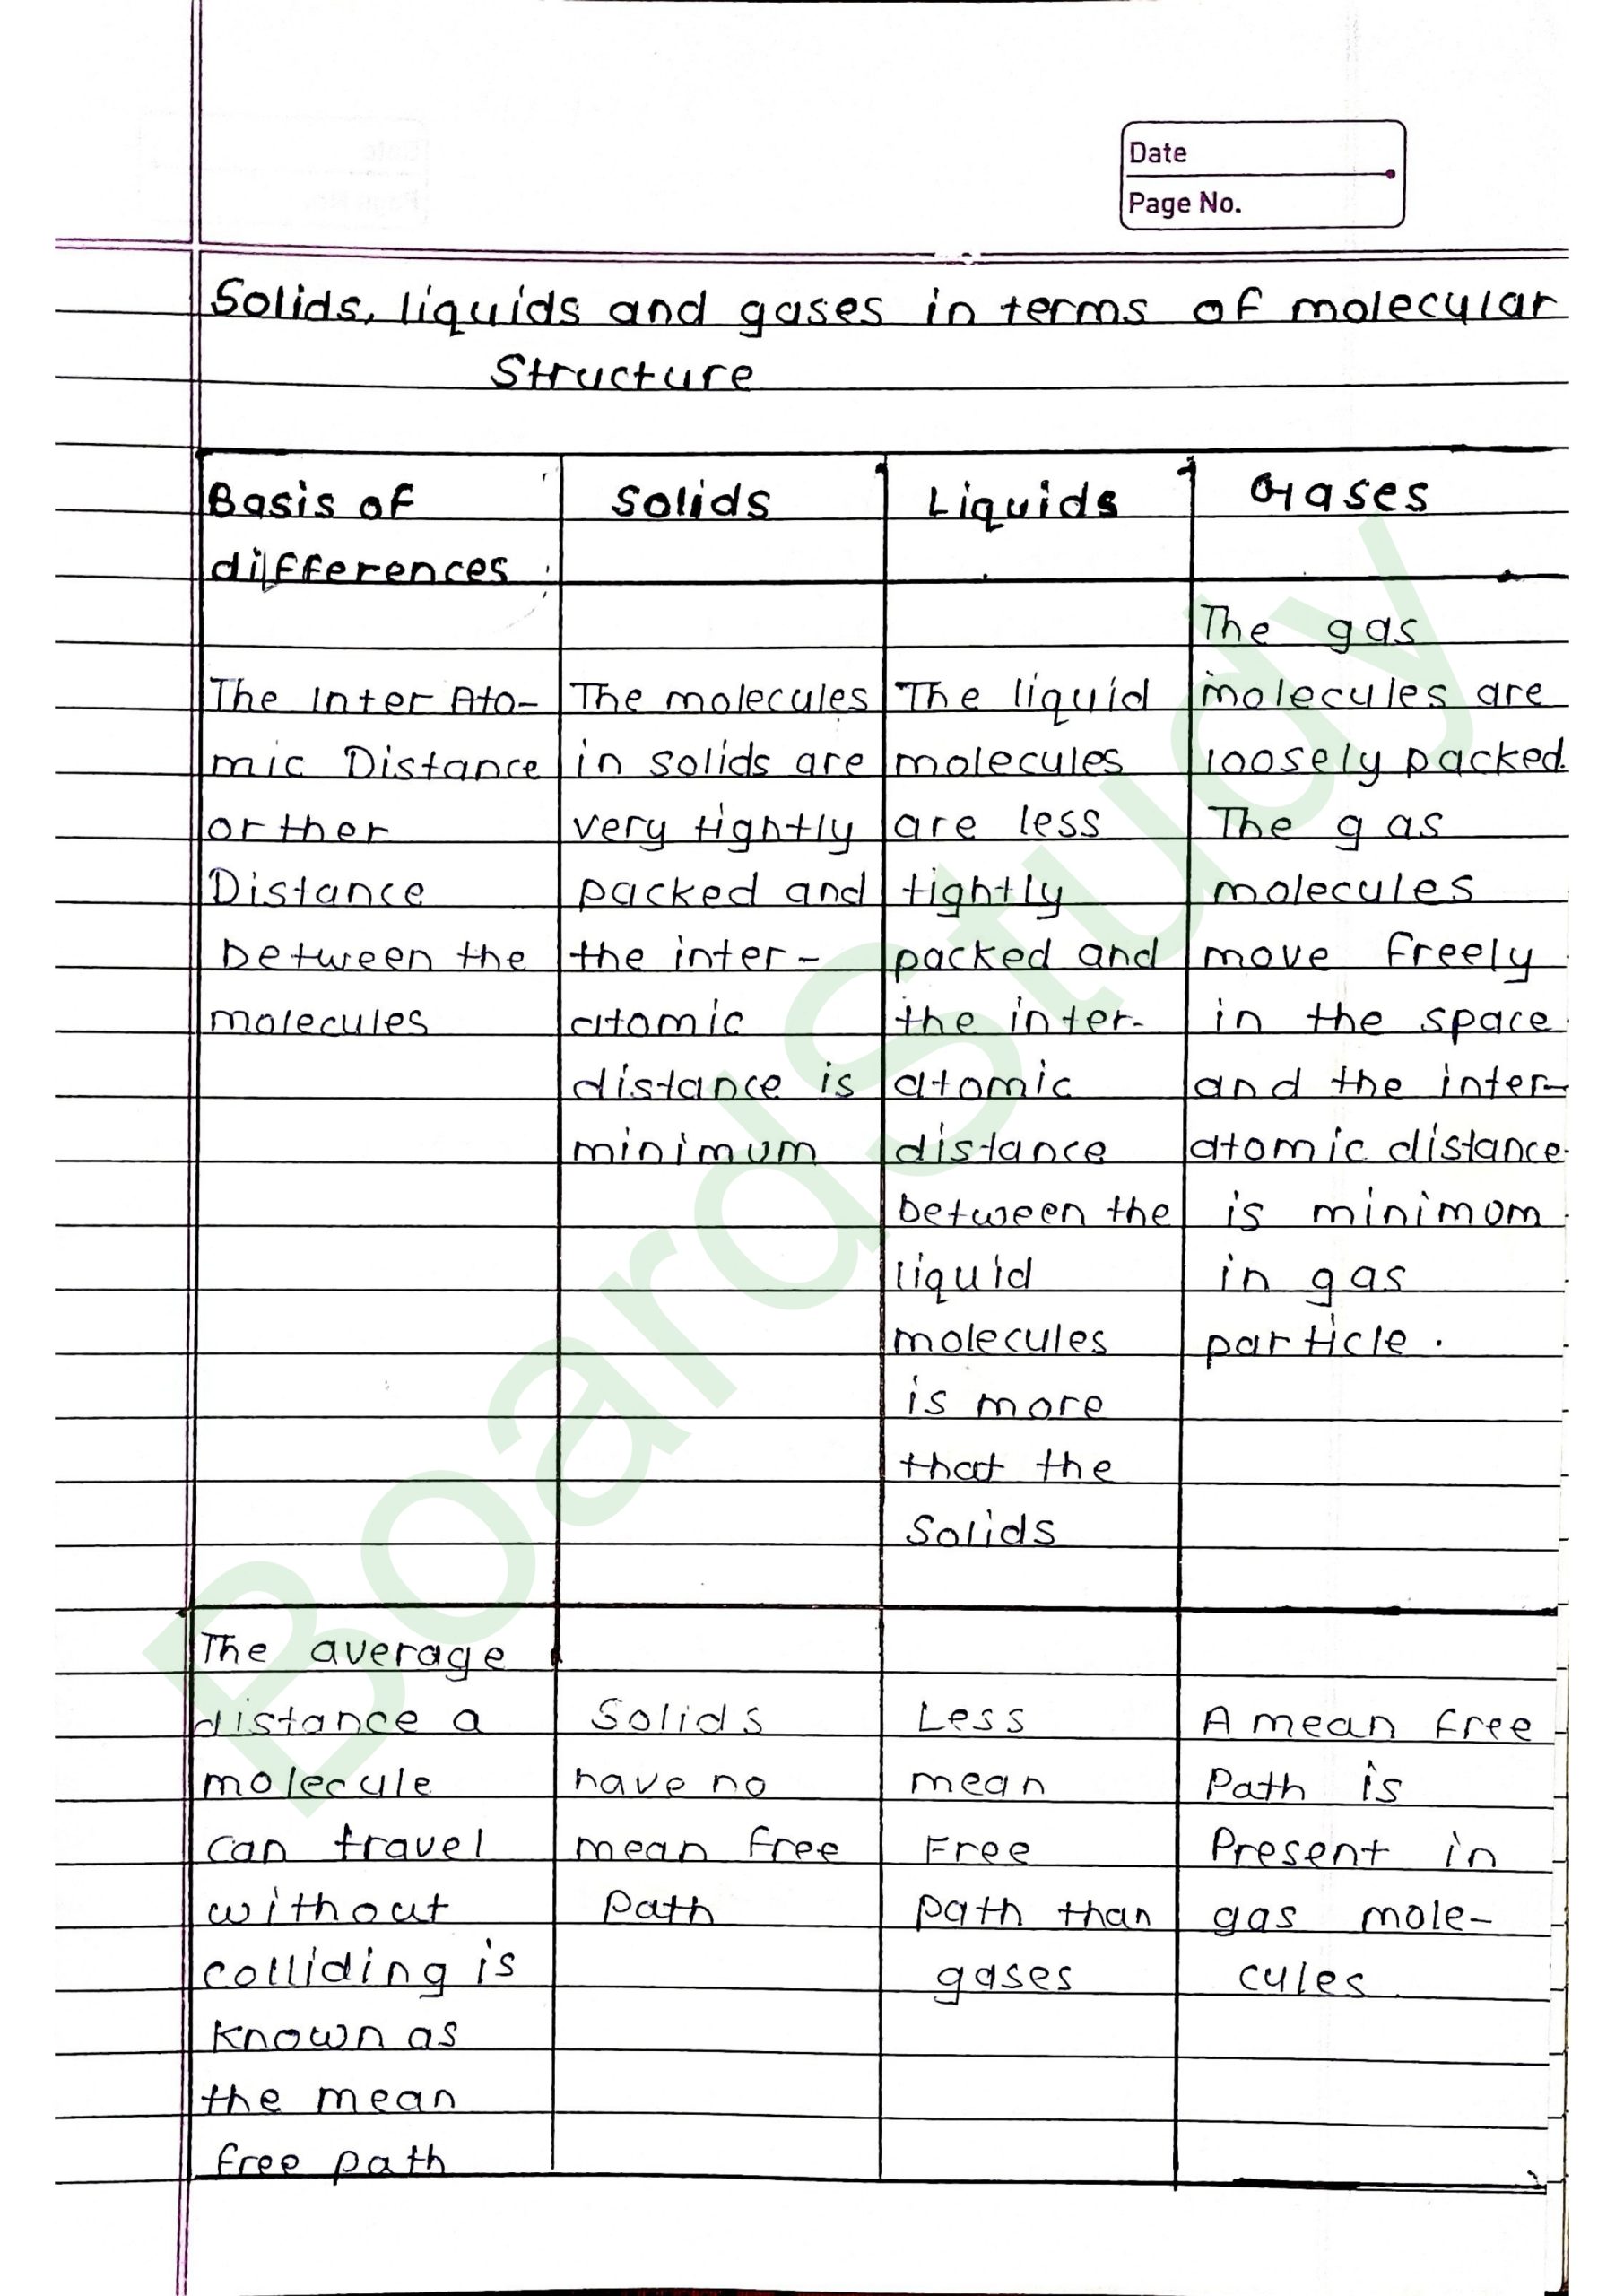 Date
Page No.
Solids, liquids and gases in terms of molecular
Structure
Basis of
differences
Solids
Liquids
Gases
The Inter Ato-
mic Distance
or ther
Distance
between the
molecules
The molecules
in solids are
very tightly
packed and
the inter-
atomic
distance is
minimum
The liquid
molecules
are less
tightly
packed and
the inter-
atomic
distance
between the
liquid
molecules
is more
that the
Solids
The gas
molecules are
loosely packed.
The gas
molecules
move freely
in the space
and the inter-
atomic distance
is minimom
in gas
particle.
The average
distance a
molecule
can travel
without
colliding is
known as
the mean
free path
Solids
have no
mean free
path
Less
mean
Free
path than
gases
A mean free
Path is
Present in
gas mole-
cules
BoardStudy